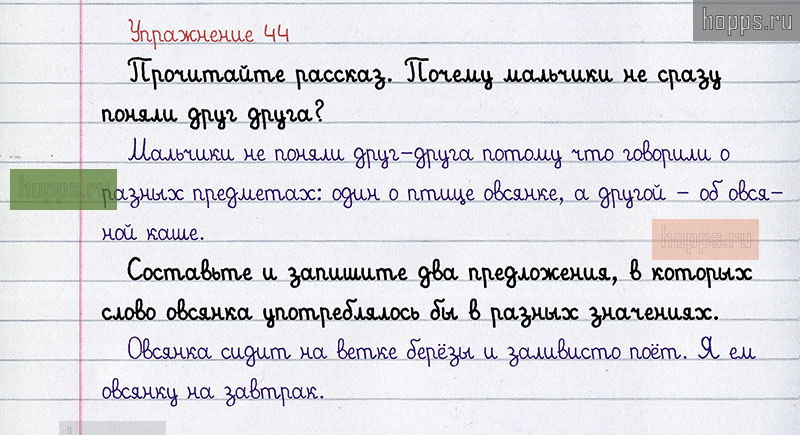 hopps.ru
Упражнение 44
Прочитайте рассказ. Почему мальчики не сразу
поняли друг друга?
Мальчики не поняли друг-друга потому что говорили о
hopps.ru
разных предметах: один о птице овсянке, а другой – об овся-
ной каше.
hopps.ru
Составьте и запишите два предложения, в которых
слово овсянка употреблялось бы в разных значениях.
Овсянка сидит на ветке берёзы и заливисто поёт. Я ем
овсянку на завтрак.